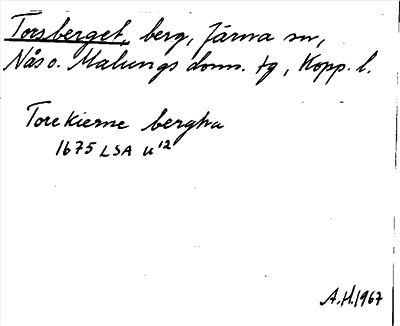 Torsberget, berg, Järna sn,
Nås o. Malungs doms. tg, Kopp. l.
Torekierne bergha
1675 LSA U 12
A.H. 1967